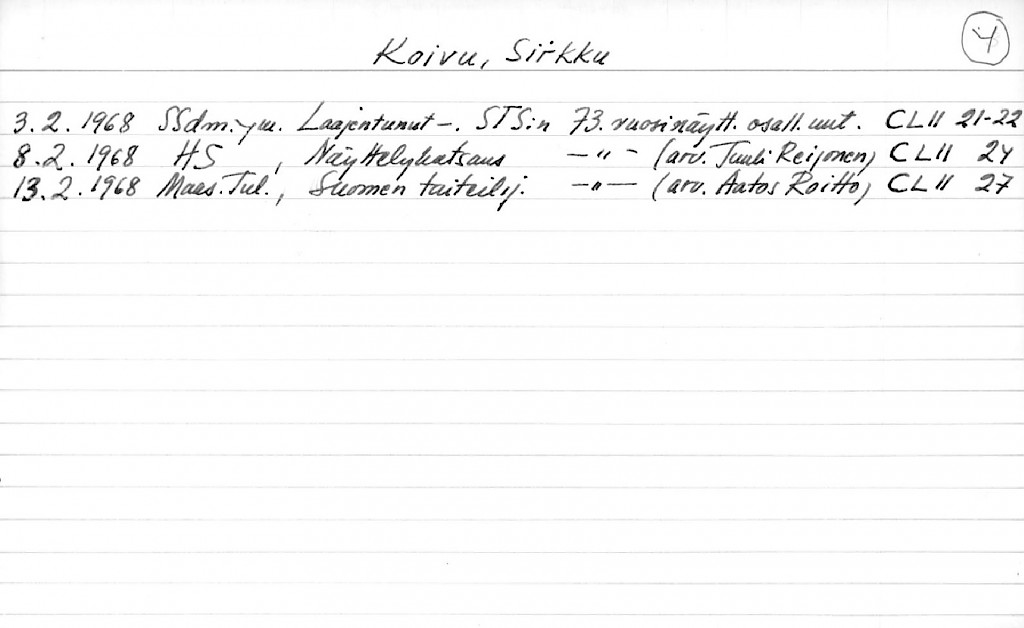 4
Koivu, Sirkku
3.2.1968 SSdm. ym. Laajentunut -. STS:n 73. vuosinäytt. osall. uut. CLII 21-22
8.2.1968 HS , Näyttelykatsaus —"— (arv. Tuuli Reijonen) CLII 24
13.2.1968 Maas. Tul., Suomen taiteilij. —"— (arv. Aatos Roitto) CLII 27